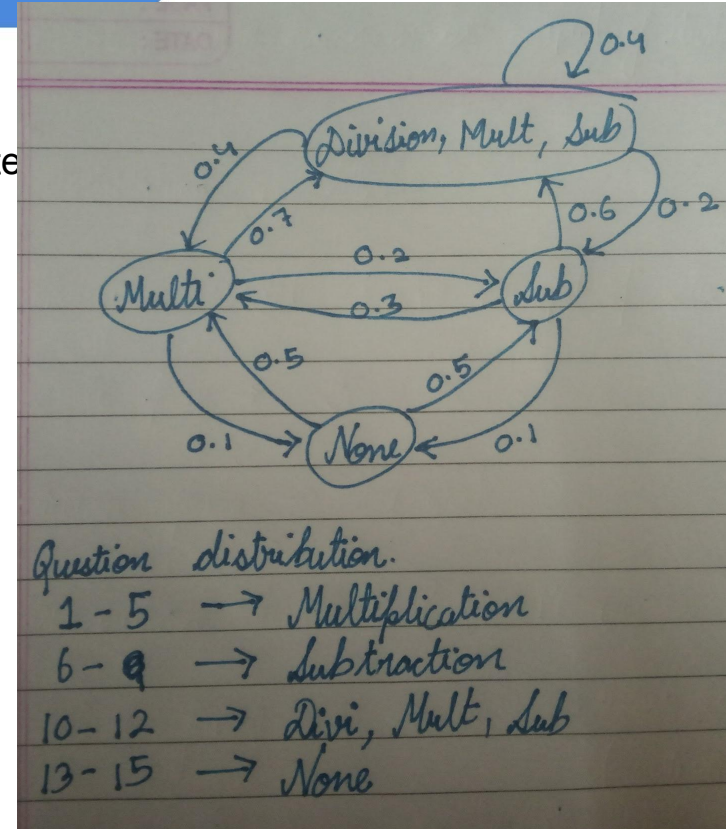 te
DATE:
0.4
Division, Mult, Sub
0.4
0.7
0.6
0.2
0.2
Multi
Sub
0.3
0.5
0.5
0.1
None
0.1
Question distribution.
1-5 → Multiplication
6-9 → Subtraction
10-12 → Divi, Mult, Sub
13-15 → None